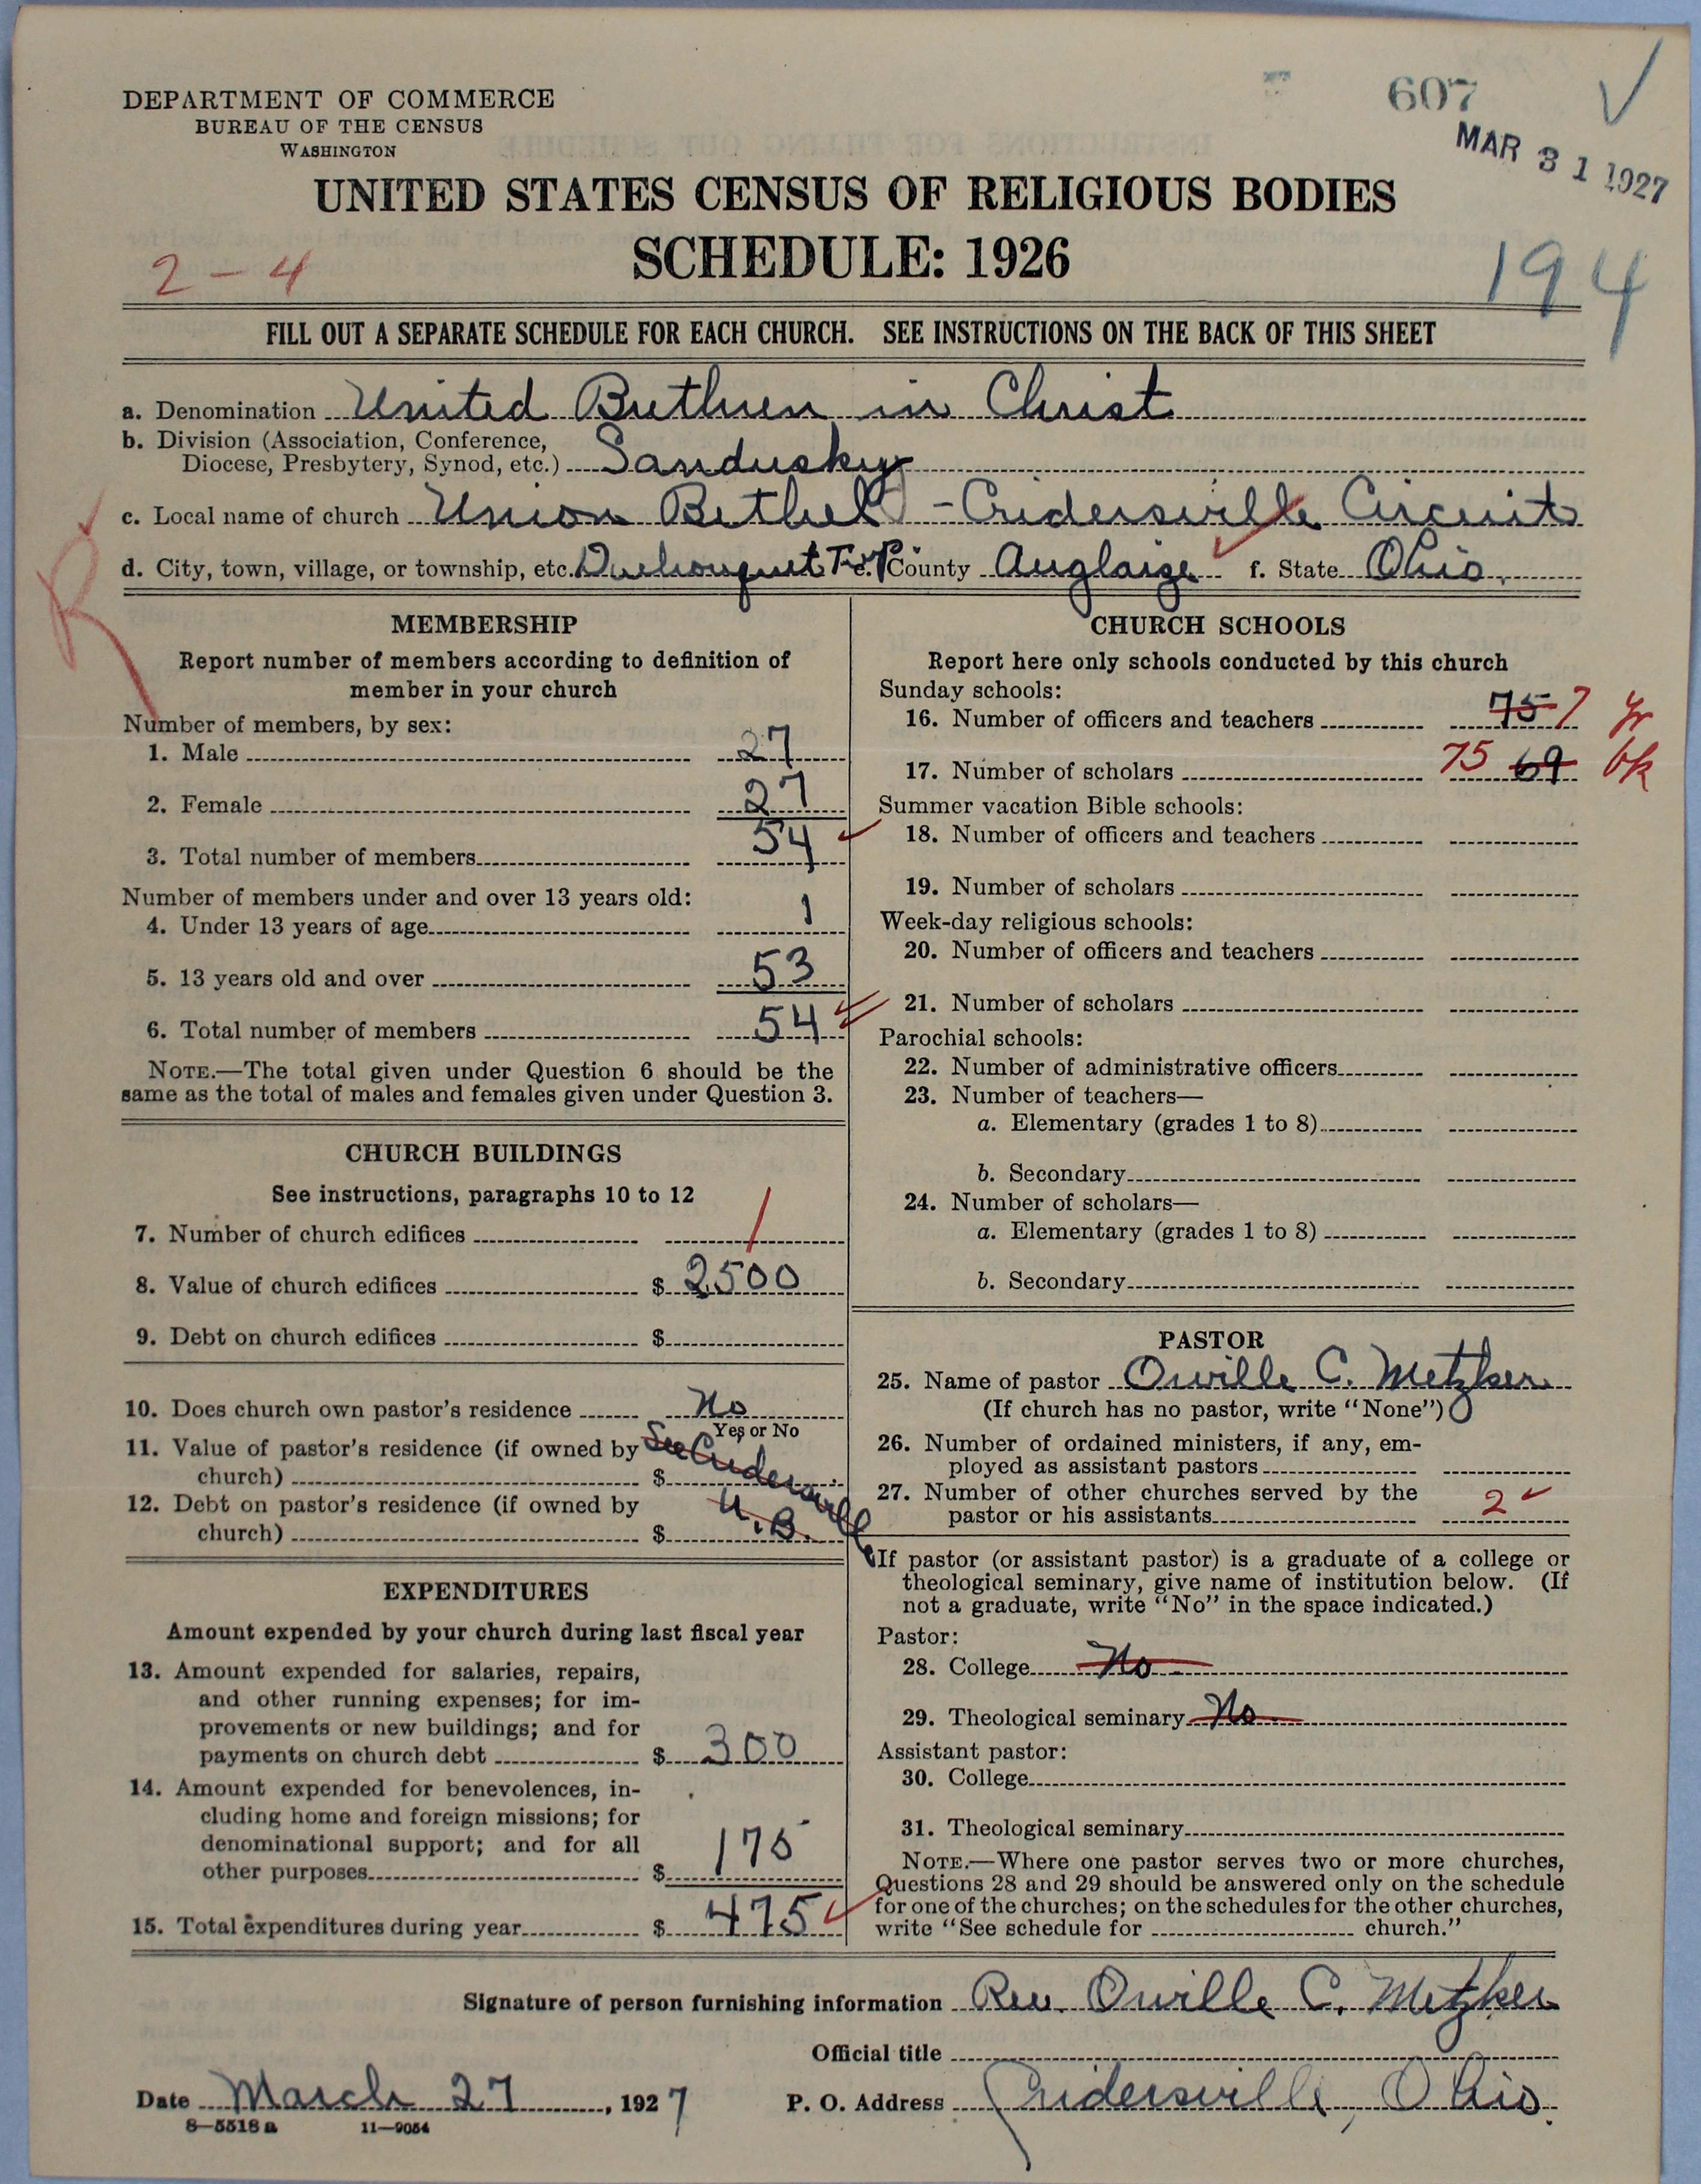 607
MAR 31 1927
DEPARTMENT OF COMMERCE
BUREAU OF THE CENSUS
WASHINGTON
UNITED STATES CENSUS OF RELIGIOUS BODIES
SCHEDULE: 1926
2-4
194
FILL OUT A SEPARATE SCHEDULE FOR EACH CHURCH. SEE INSTRUCTIONS ON THE BACK OF THIS SHEET
a. Denomination United Brethren in Christ
b. Division (Association, Conference,
Diocese, Presbytery, Synod, etc.) Sandusky
c. Local name of church Union Bethel - Cridersville Circuit
d. City, town, village, or township, etc. Duchouquet Twp e. County Auglaize f. State Ohio.
R
MEMBERSHIP
Report number of members according to definition of
member in your church
Number of members, by sex:
1. Male 27
2. Female 27
3. Total number of members 54
Number of members under and over 13 years old:
4. Under 13 years of age 1
5. 13 years old and over 53
6. Total number of members 54
NOTE.—The total given under Question 6 should be the
same as the total of males and females given under Question 3.
CHURCH BUILDINGS
See instructions, paragraphs 10 to 12
7. Number of church edifices 1
8. Value of church edifices $ 2500
9. Debt on church edifices $
10. Does church own pastor's residence No
Yes or No
11. Value of pastor's residence (if owned by See Cridersville
church) $
12. Debt on pastor's residence (if owned by U.B.
church) $
EXPENDITURES
Amount expended by your church during last fiscal year
13. Amount expended for salaries, repairs,
and other running expenses; for im-
provements or new buildings; and for
payments on church debt $ 300
14. Amount expended for benevolences, in-
cluding home and foreign missions; for
denominational support; and for all
other purposes $ 175
15. Total expenditures during year $ 475
CHURCH SCHOOLS
Report here only schools conducted by this church
Sunday schools:
16. Number of officers and teachers 75 7 yr
17. Number of scholars 75 69 bk
Summer vacation Bible schools:
18. Number of officers and teachers
19. Number of scholars
Week-day religious schools:
20. Number of officers and teachers
21. Number of scholars
Parochial schools:
22. Number of administrative officers
23. Number of teachers—
a. Elementary (grades 1 to 8)
b. Secondary
24. Number of scholars—
a. Elementary (grades 1 to 8)
b. Secondary
PASTOR
25. Name of pastor Orville C. Metzker
(If church has no pastor, write "None")
26. Number of ordained ministers, if any, em-
ployed as assistant pastors
27. Number of other churches served by the
pastor or his assistants 2
If pastor (or assistant pastor) is a graduate of a college or
theological seminary, give name of institution below. (If
not a graduate, write "No" in the space indicated.)
Pastor:
28. College No
29. Theological seminary No
Assistant pastor:
30. College
31. Theological seminary
NOTE.—Where one pastor serves two or more churches,
Questions 28 and 29 should be answered only on the schedule
for one of the churches; on the schedules for the other churches,
write "See schedule for church."
Signature of person furnishing information Rev. Orville C. Metzker
Official title
Date March 27, 1927 P. O. Address Cridersville, Ohio.
8—5518 a 11—9054